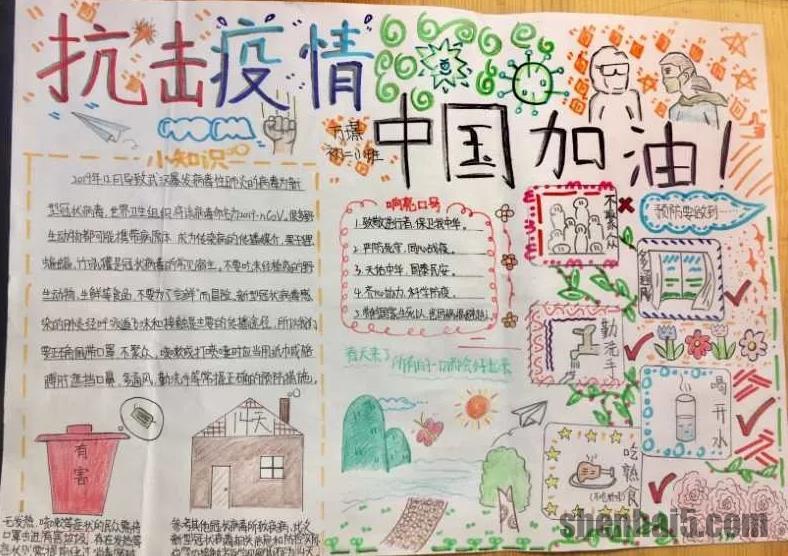 抗击疫情
中国加油!
小知识
2019年12月导致武汉暴发病毒性肺炎的病毒为新
型冠状病毒,世界卫生组织将该病毒命名为2019-nCoV,很多野
生动物都可能携带病原体,成为传染病的传播媒介,果子狸、
蝙蝠、竹鼠、獾是冠状病毒的常见宿主。不要吃未经检疫的野
生动物、生鲜等食品,不要为了“尝鲜”而冒险。新型冠状病毒感
染的肺炎经呼吸道飞沫和接触是主要的传播途径,所以我们
要正确佩带口罩,不聚众,咳嗽或打喷嚏时应当用纸巾或胳
膊肘遮挡口鼻,多通风,勤洗手等常握正确的预防措施。
响亮口号
1.致敬逆行者,保卫我中华。
2.严防死守,同心战疫。
3.天佑中华,国泰民安。
4.齐心协力,科学防疫。
春天来了
所有的一切都会好起来
不聚众
预防要做到……
多通风
勤洗手
喝开水
吃熟食
(不吃野味)
有害
14天
无发热、咳嗽等症状的民众需将
shenhai5.com